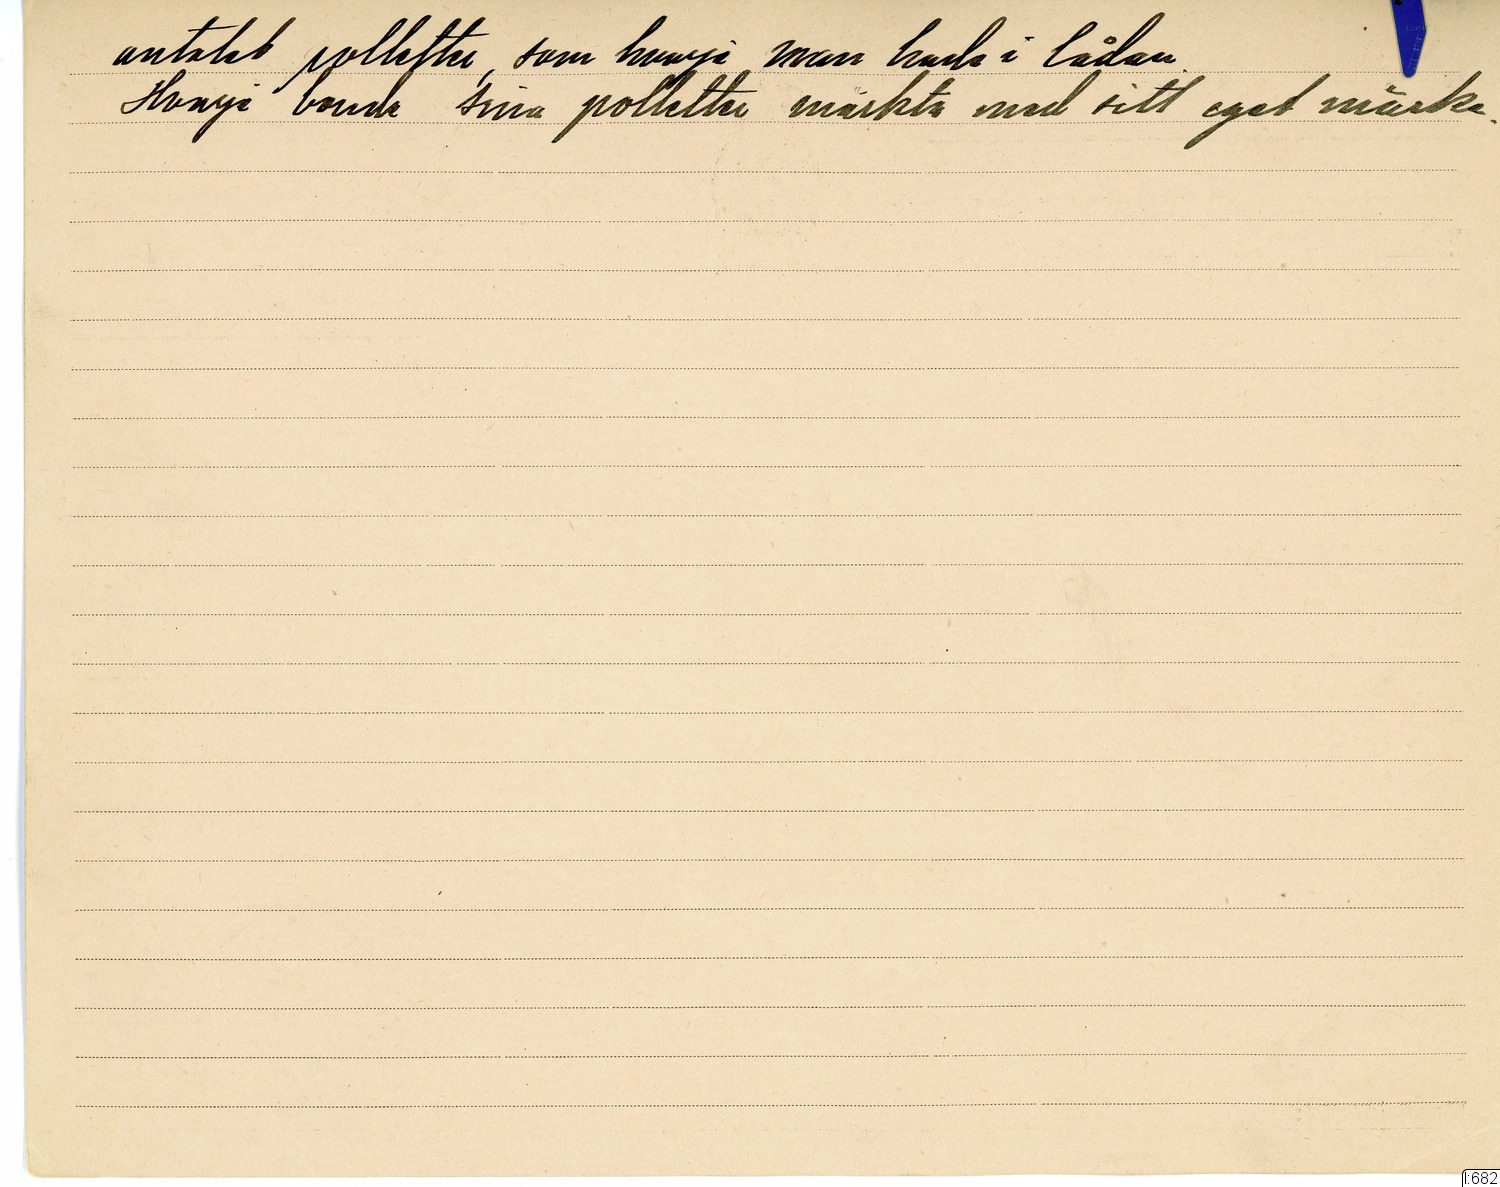 antalet polletter, som hvarje man hade i lådan.
Hvarje bonde sina polletter märkta med sitt eget märke.
1:682